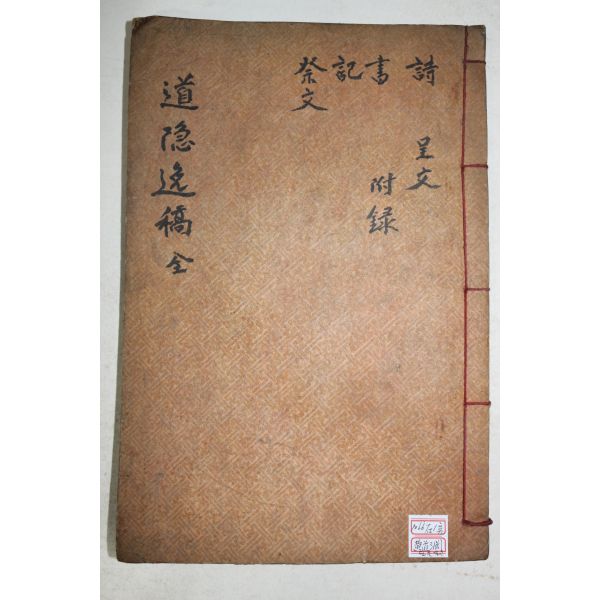 詩
書
記
祭文
呈文
附録
道隐逸稿 全